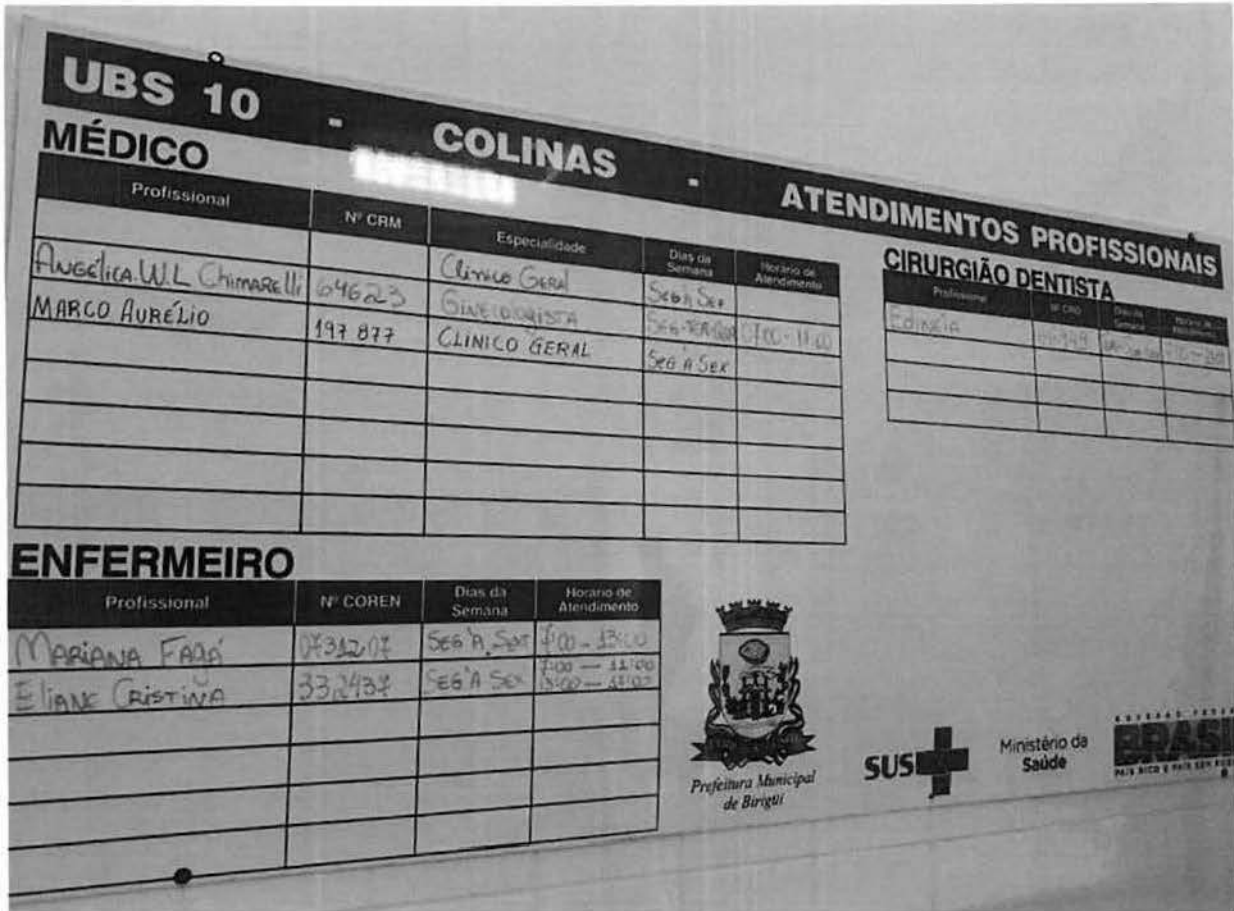 UBS 10 - COLINAS - ATENDIMENTOS PROFISSIONAIS
MÉDICO
Profissional Nº CRM Especialidade Dias da Semana Horário de Atendimento
Clínico Geral Seg à Sex
Angélica W.L Chimarelli 64623 Ginecologista Seg-Ter-Qua 07:00-11:00
MARCO AURÉLIO 197 877 CLINICO GERAL Seg A Sex
CIRURGIÃO DENTISTA
Profissional Nº CRO Dias da Semana Horário de Atendimento
Edineia
ENFERMEIRO
Profissional Nº COREN Dias da Semana Horario de Atendimento
MARIANA FAGÁ SEG À SEXT 7:00 - 13:00
ELIANE CRISTINA 332437 SEG À SEX 7:00 — 11:00
13:00 — 17:00
Prefeitura Municipal
de Birigüi
SUS
Ministério da
Saúde
GOVERNO FEDERAL
BRASIL
PAÍS RICO É PAÍS SEM POBREZA